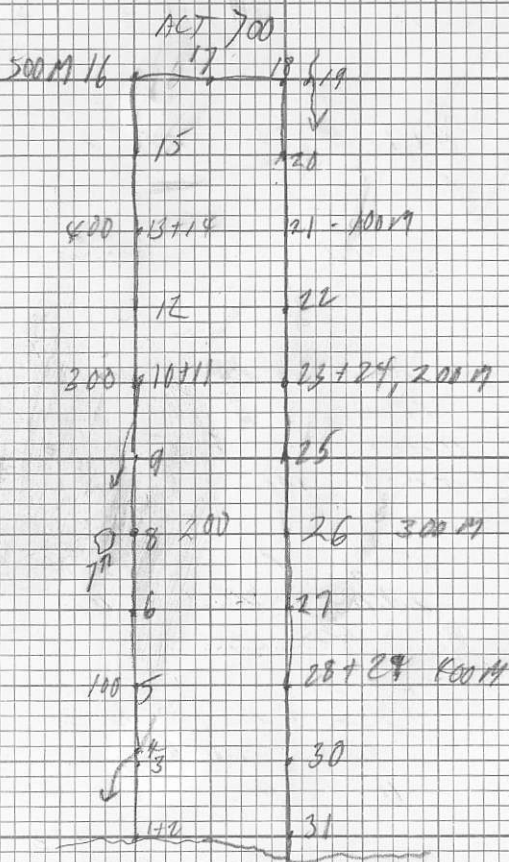 ACT 700
17
500M 16 18 19
15 20
400 13+14 21 - 100M
12 22
300 10+11 23+24, 200M
9 25
8 200 26 300M
7
6 27
100 5 28+29 400M
4
3 30
1+2 31